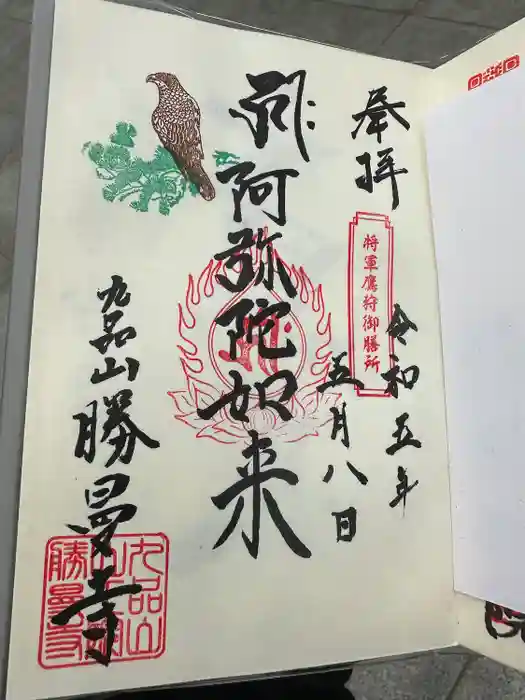 奉拝
将軍鷹狩御膳所
令和五年
五月八日
阿弥陀如来
九品山勝曼寺